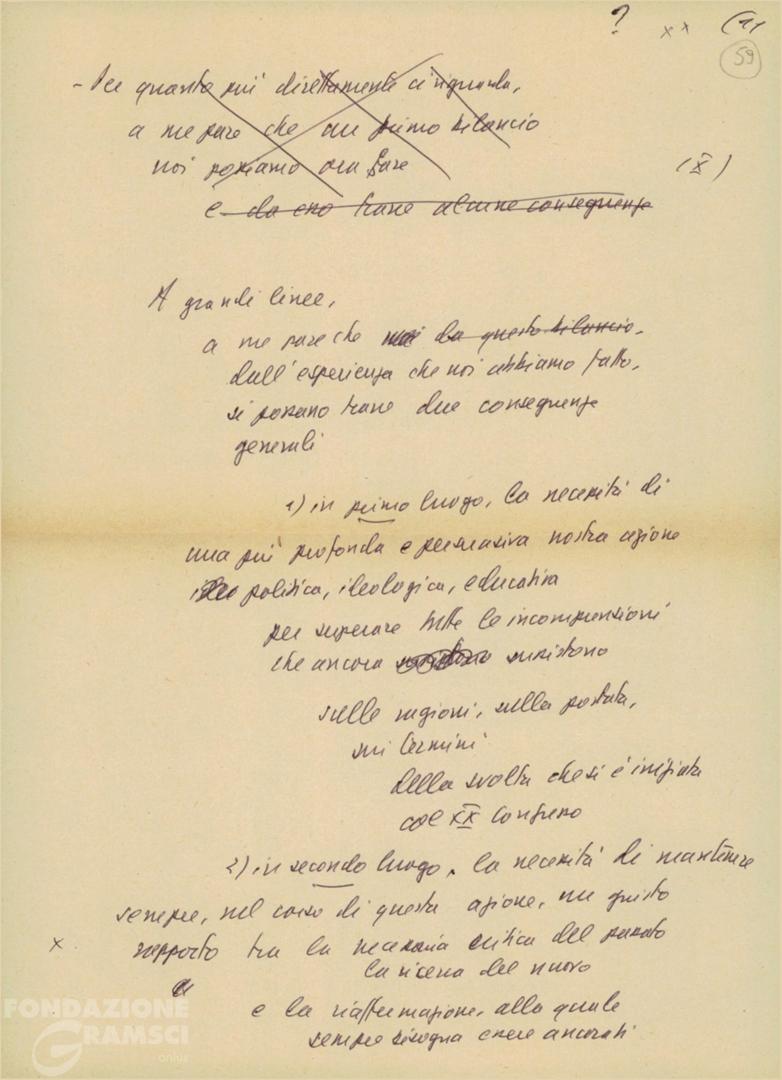 ? xx (11
59
- Per quanto più direttamente ci riguarda,
a me pare che un primo bilancio
noi possiamo ora fare
(X)
e da esso trarre alcune conseguenze
A grandi linee,
a me pare che noi da questo bilancio,
dall'esperienza che noi abbiamo fatto,
si possano trarre due conseguenze
generali
1) in primo luogo, la necessità di
una più profonda e persuasiva nostra azione
politica, ideologica, educativa
per superare tutte le incomprensioni
che ancora sussistono
sulle ragioni, sulla portata,
sui termini
della svolta che si è iniziata
col XX Congresso
2) in secondo luogo, la necessità di mantenere
sempre, nel corso di questa azione, un giusto
x rapporto tra la necessaria critica del passato
la ricerca del nuovo
e la riaffermazione, alla quale
sempre bisogna essere ancorati
FONDAZIONE
GRAMSCI
onlus